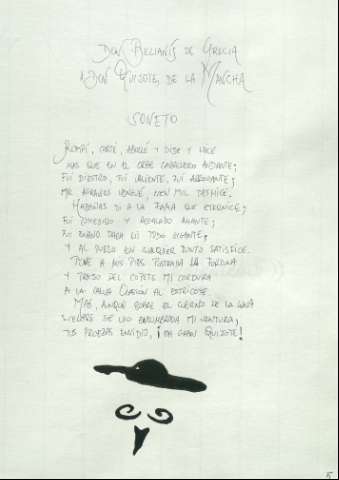 Don Belianís de Grecia
a Don Quijote de la Mancha
SONETO
Rompí, corté, abollé y dije y hice
más que en el orbe caballero andante;
fui diestro, fui valiente, fui arrogante;
mil agravios vengué, cien mil deshice.
Hazañas di a la Fama que eternice;
fui comedido y regalado amante;
fue enano para mí todo gigante,
y al duelo en cualquier punto satisfice.
Tuve a mis pies postrada la Fortuna
y trajo del copete mi cordura
a la calva Ocasión al estricote.
Mas, aunque sobre el cuerno de la luna
siempre se vio encumbrada mi ventura,
tus proezas envidio, ¡oh gran Quijote!
5